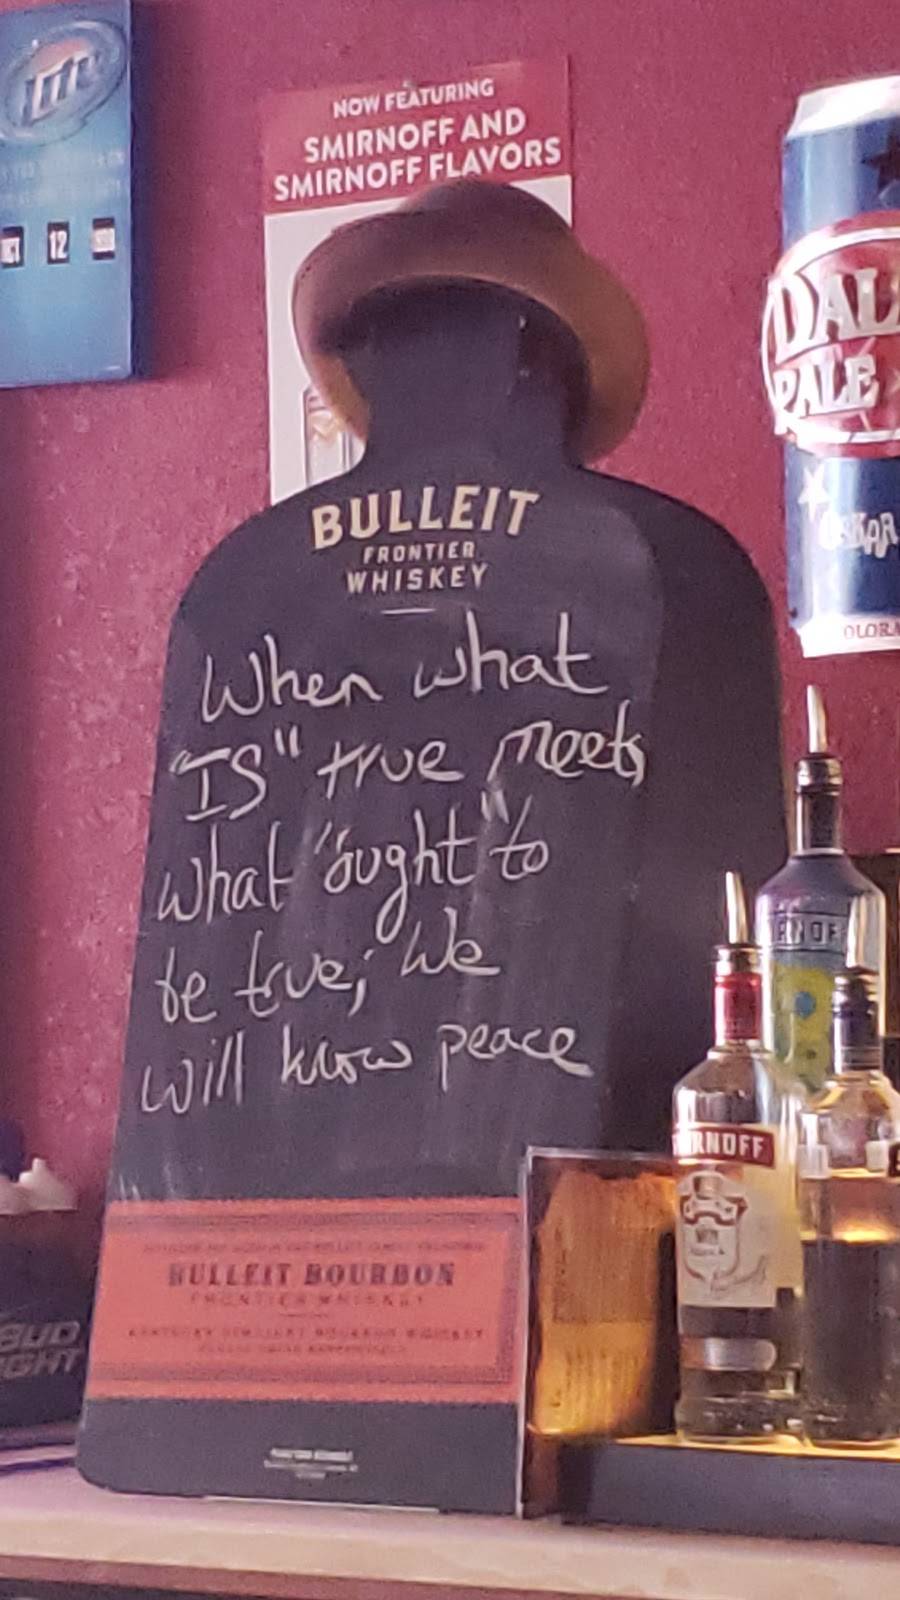 Lite
OCT 12
NOW FEATURING
SMIRNOFF AND
SMIRNOFF FLAVORS
DAL
PALE
OSKAR
OLORA
BULLEIT
FRONTIER
WHISKEY
When what
"IS" true meets
what "ought" to
be true; We
will know peace
RNOFF
RNOFF
BULLEIT BOURBON
FRONTIER WHISKEY
KENTUCKY STRAIGHT BOURBON WHISKEY
BUD
IGHT